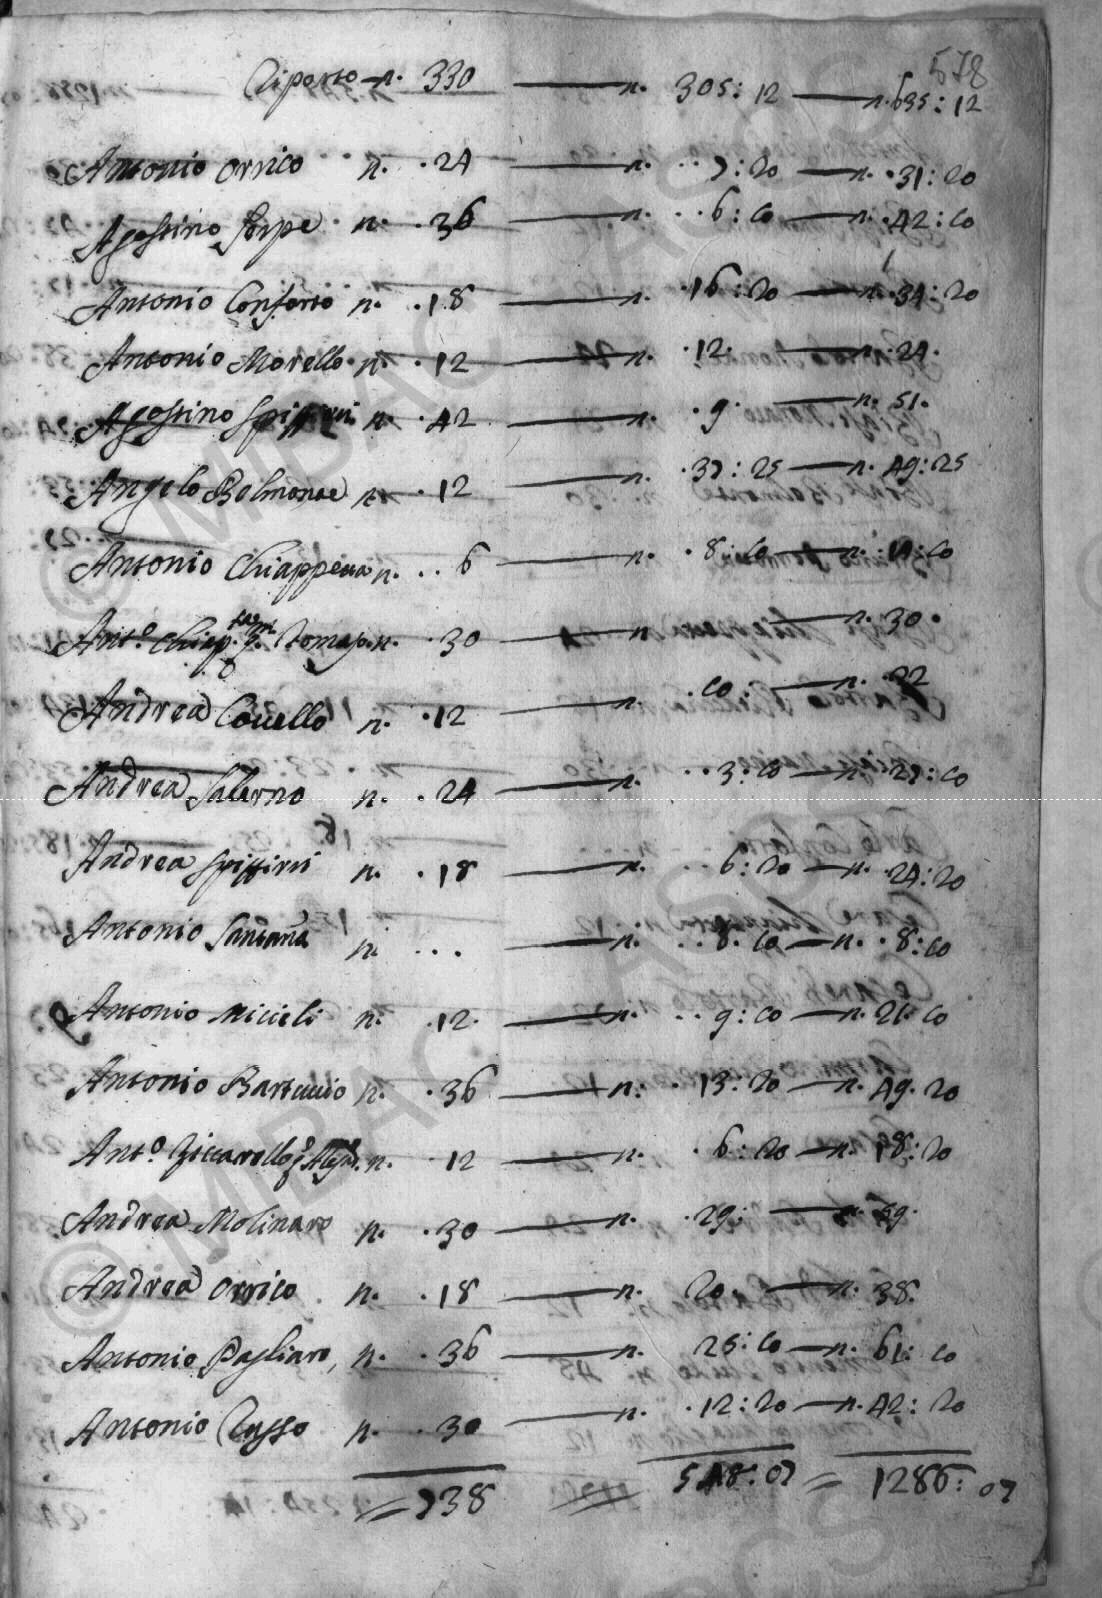 578
Riporto n. 330 — n. 305: 12 — n. 635: 12
Antonio Orrico n. . 24 — n. . . 7: 20 — n. . 31: 20
Agostino Serpe n. . 36 — n. . . 6: 10 — n. . 42: 10
Antonio Conforto n. . 18 — n. . 16: 20 — n. . 34: 20
Antonio Morello n. . 12 — n. . 12. — n. . 24.
Agostino Spiffiri n. . 42 — n. . 9: — n. 51.
Angelo Belmonte n. . 12 — n. . 37: 25 — n. 49: 25
Antonio Chiappetta n. . . 6 — n. . 8: 10 — n. . 14: 10
Ant.o Chiap. Tomaso. n. . 30 — n. — n. . 30.
Andrea Covello n. . 12 — n. . 10: — n. . 22
Andrea Salerno n. . 24 — n. . . 3: 10 — n. . 27: 10
Andrea Spiffiri n. . 18 — n. . . 6: 20 — n. . 24: 20
Antonio Santanna n. . . . — n. . . 8. 10 — n. . 8: 10
Antonio Micieli n. . 12. — n. . . 9: 10 — n. 21. 10
Antonio Bartuccio n. . 36 — n. . 13: 20 — n. 49. 20
Ant.o Ziccarello n. . 12 — n. . 6: 20 — n. 18: 20
Andrea Molinaro n. . 30 — n. . 29: — n. 59.
Andrea Orrico n. . 18 — n. 20. — n. 38.
Antonio Pagliaro, n. . 36 — n. 25: 10 — n. 61: 10
Antonio Russo n. . 30 — n. . 12: 20 — n. 42: 20
= 738 = 548: 07 = 1286: 07
© MIBAC ASCS
© MIBAC ASCS